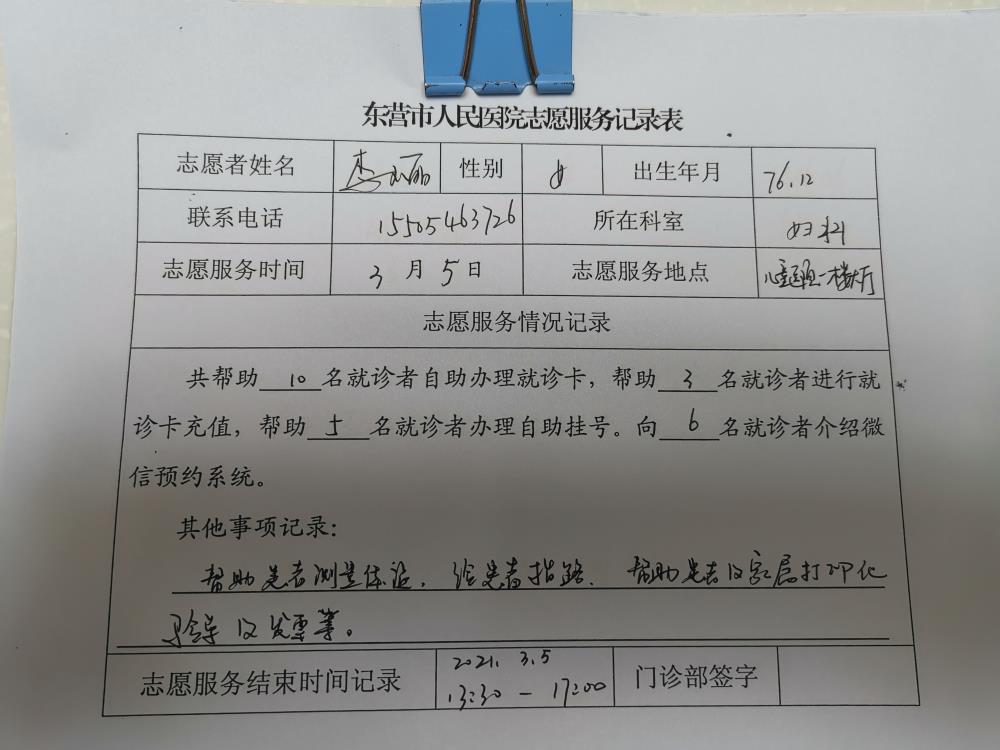 东营市人民医院志愿服务记录表
志愿者姓名 李 丽 性别 女 出生年月 76.12
联系电话 15505463726 所在科室 妇科
志愿服务时间 3月5日 志愿服务地点 一楼大厅
志愿服务情况记录
共帮助10名就诊者自助办理就诊卡，帮助3名就诊者进行就
诊卡充值，帮助5名就诊者办理自助挂号。向6名就诊者介绍微
信预约系统。
其他事项记录：
帮助患者测量体温，给患者指路、帮助患者及家属打印化
验单及发票等。
志愿服务结束时间记录 2021.3.5 门诊部签字
13:30-17:00